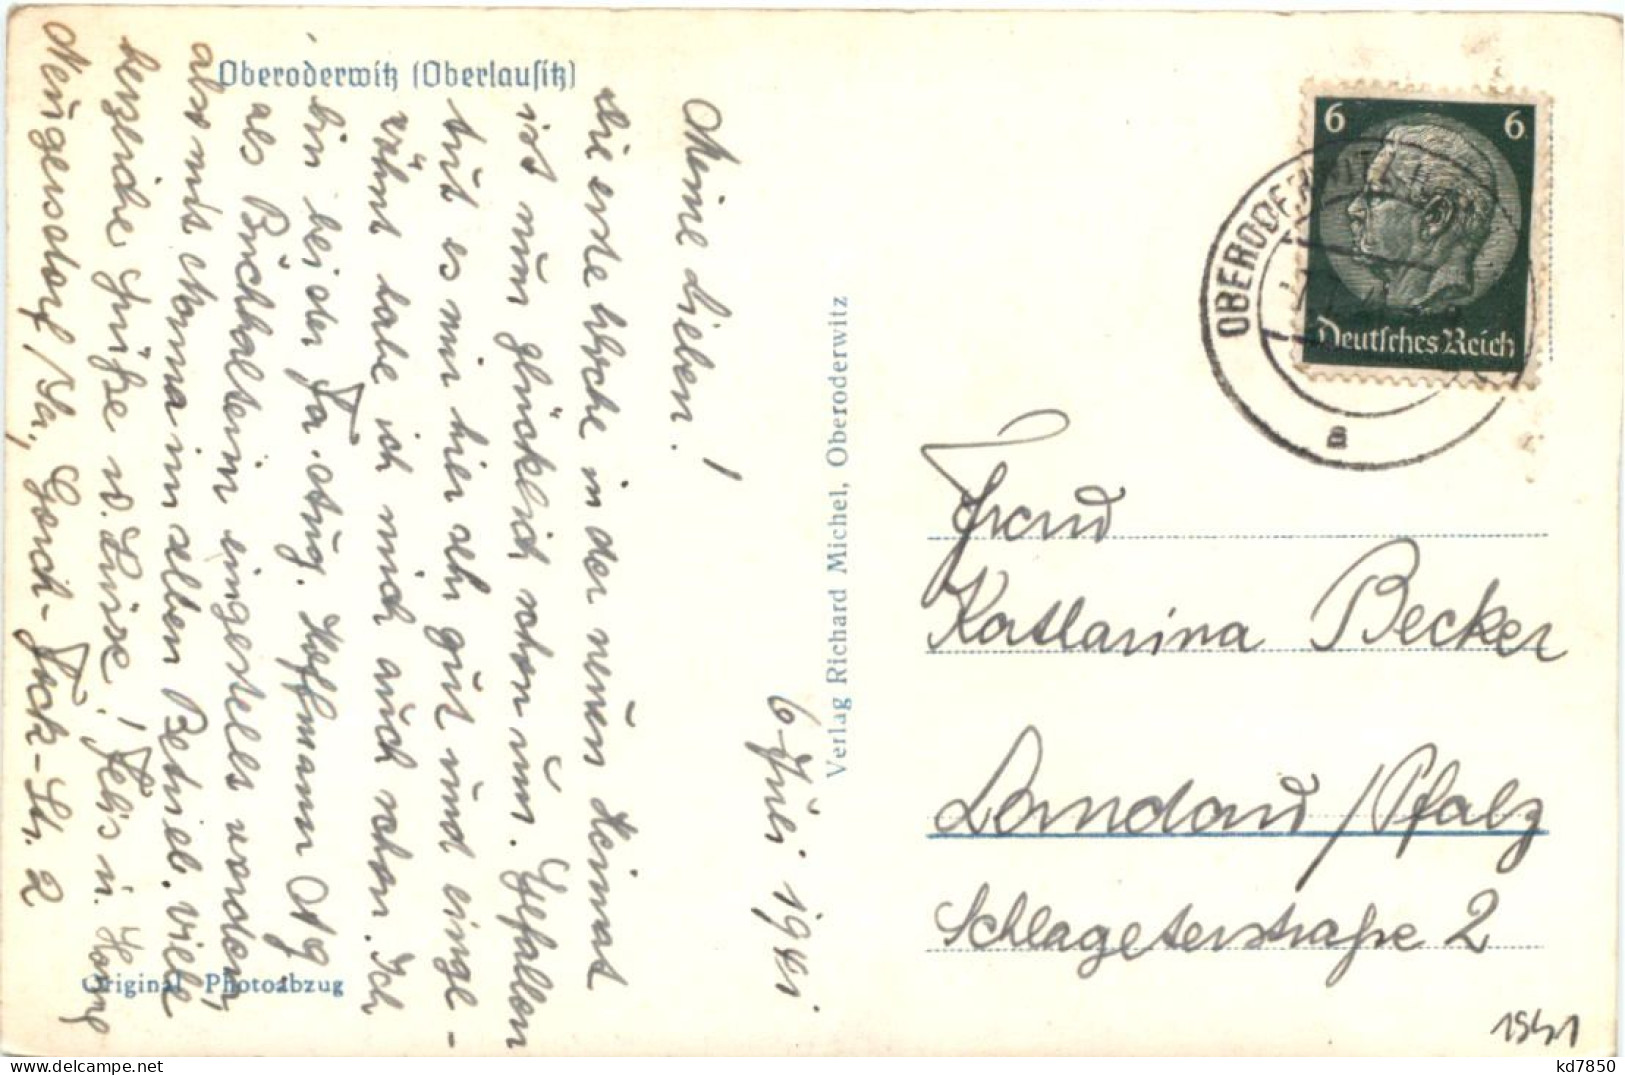 Oberoderwitz (Oberlausitz)
6 Juli 1941
Meine Lieben!
Die erste Woche in der neuen Heimat
ist nun glücklich schon um. Gefallen
tut es mir hier sehr gut und einge-
wöhnt habe ich mich auch schon. Ich
bin bei der Fa. Aug. Hoffmann AG
als Buchhalterin eingestellt worden,
also mit Mama im selben Betrieb. Viele
herzliche Grüße u. Luise! Felis u.
Neugersdorf/Sa., Gorch-Fock-Str. 2
Original Photoabzug
Verlag Richard Michel, Oberoderwitz
6 6
Deutsches Reich
OBERODERWITZ
a
Frau
Katharina Becker
Landau/Pfalz
Schlageterstraße 2
1941
kd7850